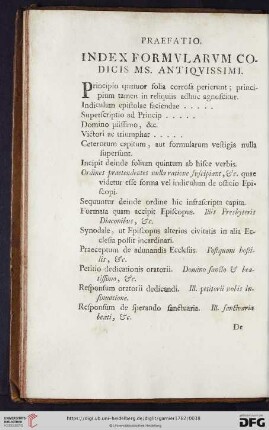 PRAEFATIO.
INDEX FORMVLARVM CO-
DICIS MS. ANTIQVISSIMI.
Principio quatuor folia corrosa perierunt; princi-
pium tamen in reliquiis adhuc agnoscitur.
Indiculum epistolae faciendae . . . . .
Superscriptio ad Princip . . . . .
Domino piissimo, &c.
Victori ac triumphat . . . . .
Ceterarum capitum, aut formularum vestigia nulla
supersunt.
Incipit deinde folium quintum ab hisce verbis.
Ordines praetendentes nulla ratione suscipiant, &c. quae
videtur esse forma vel indiculum de officio Epi-
scopi.
Sequuntur deinde ordine hic infrascripta capita.
Formata quam accipit Episcopus. Illis Presbyteris
Diaconibus, &c.
Synodale, ut Episcopus alterius civitatis in alia Ec-
clesia possit incardinari.
Praeceptum de adunandis Ecclesiis. Postquam hosti-
lis, &c.
Petitio dedicationis oratorii. Domino sancto & bea-
tissimo, &c.
Responsum oratorii dedicandi. Ill. petitorii nobis in-
sinuatione.
Responsum de sperando sanctuaria. Ill. sanctuaria
beati, &c.
De
http://digi.ub.uni-heidelberg.de/diglit/garnier1762/0038
© Universitätsbibliothek Heidelberg
gefördert durch die
DFG